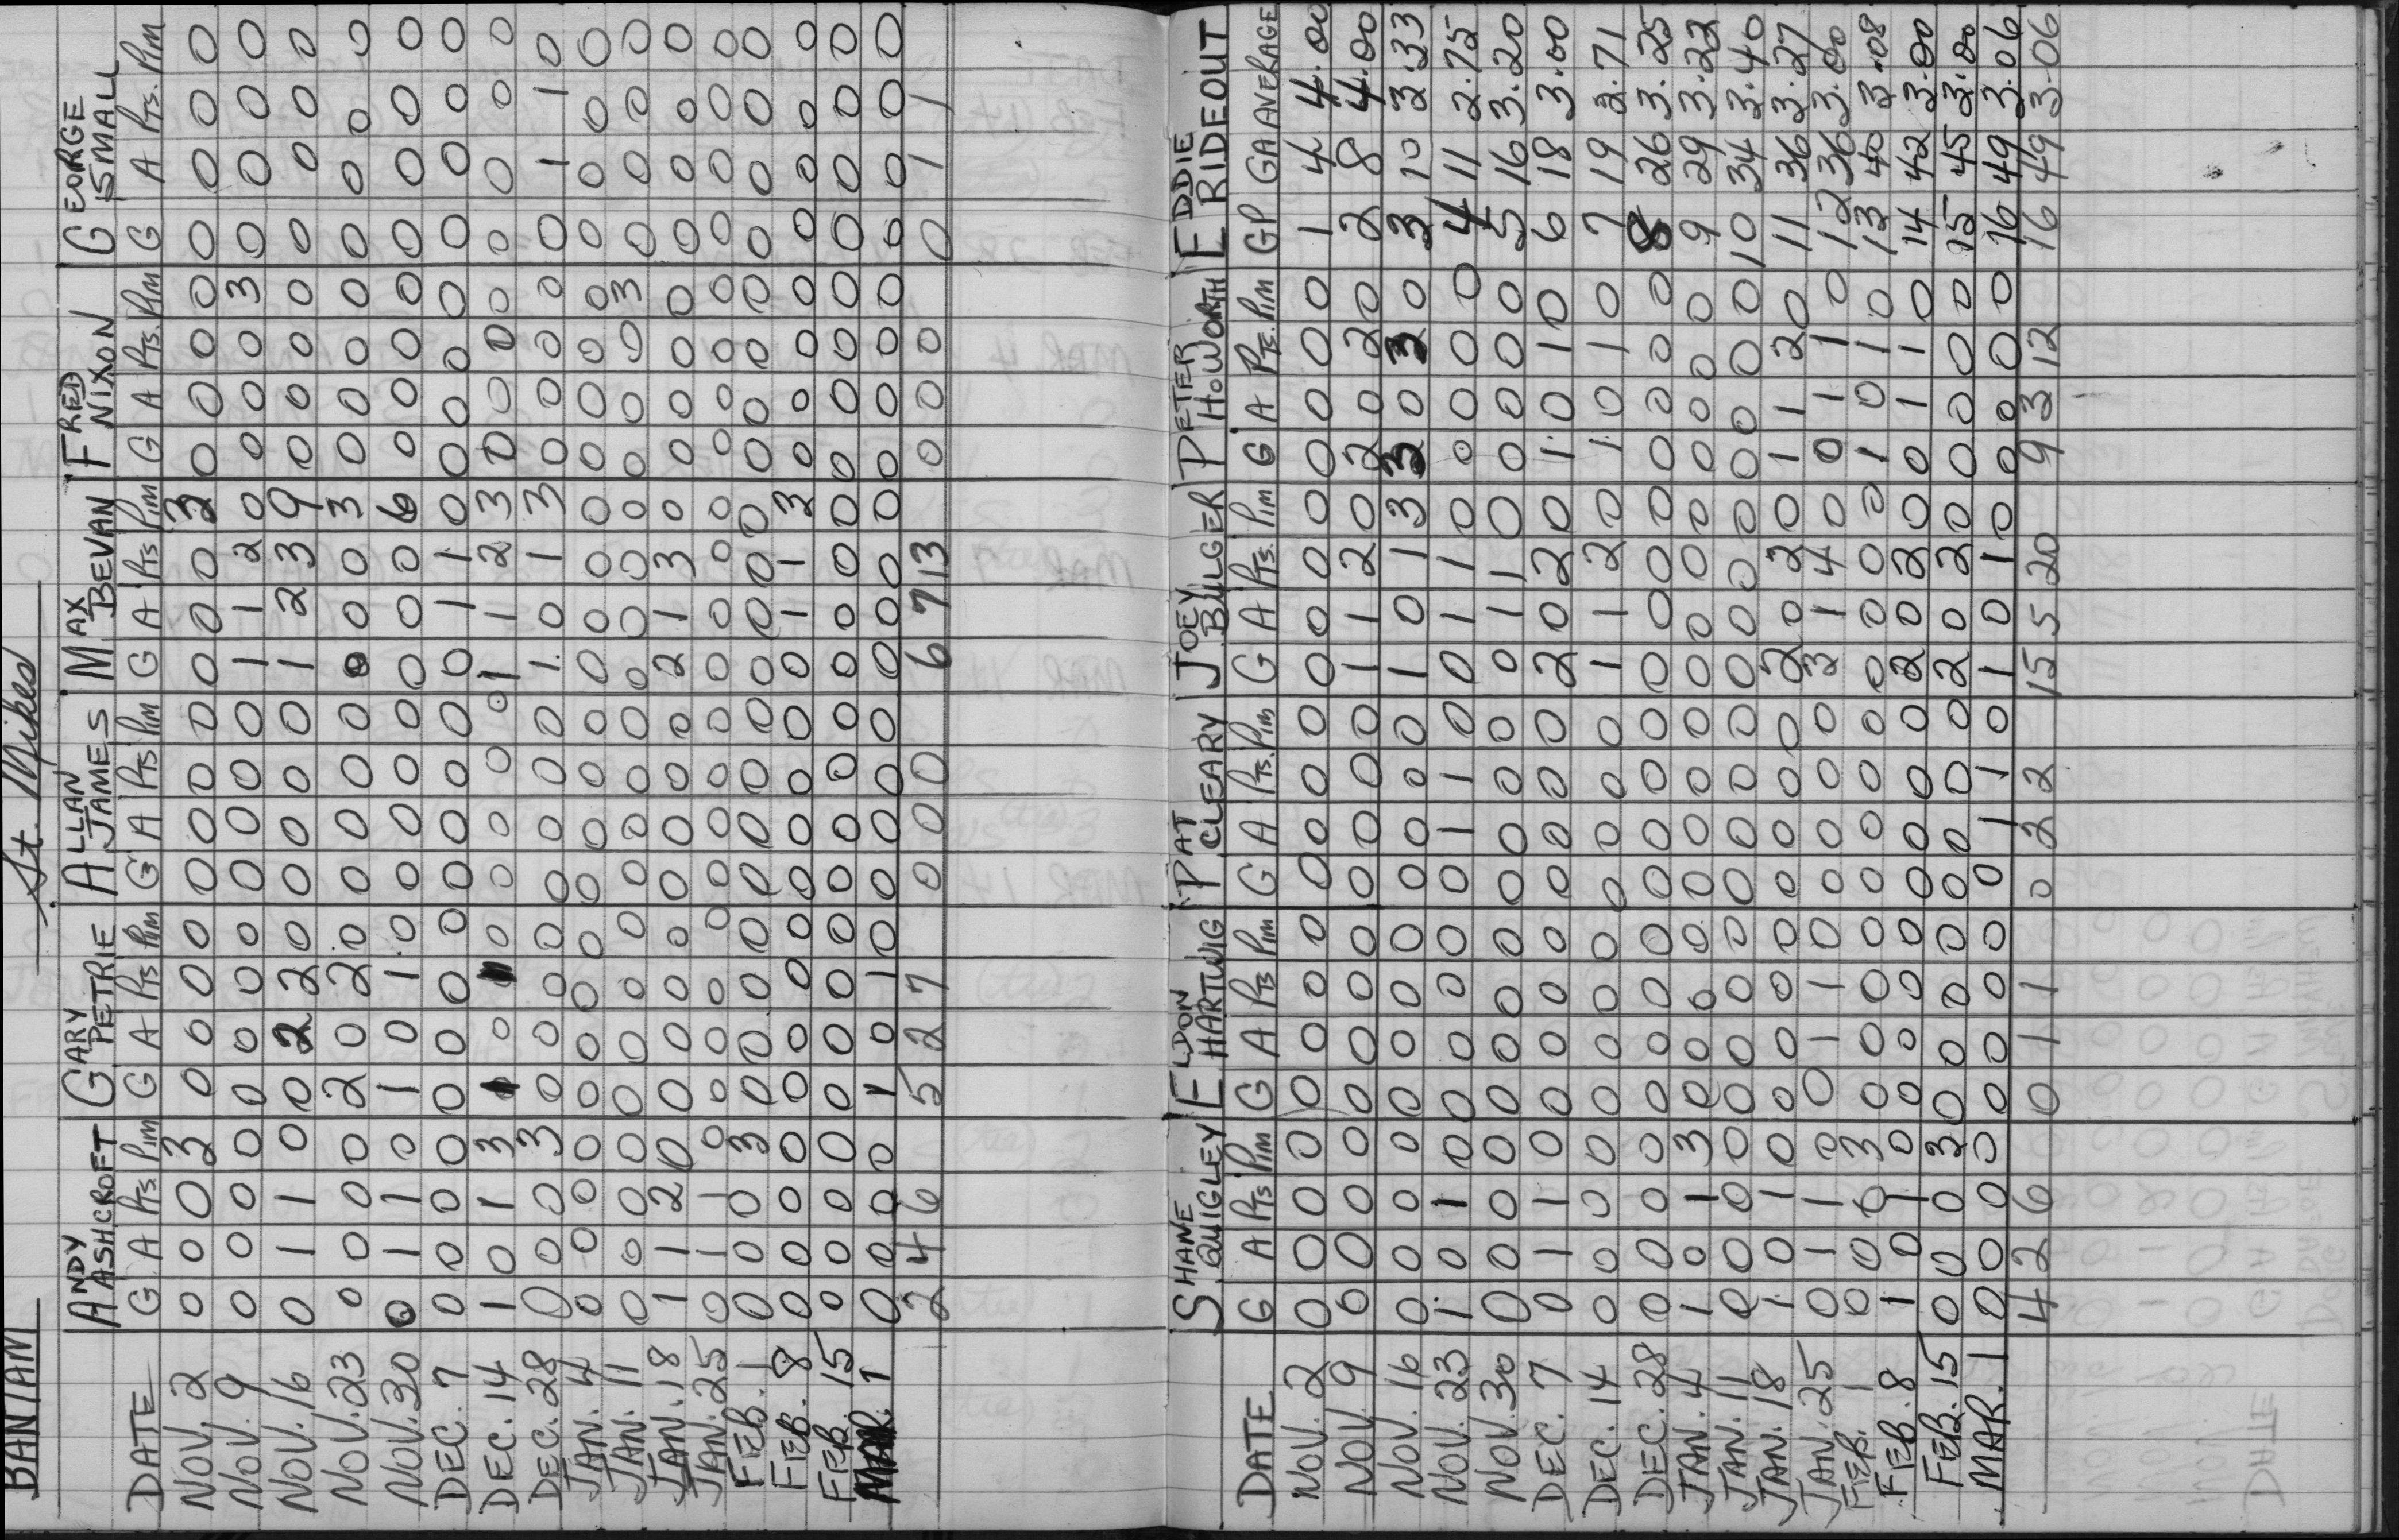 BANTAM St. Mikes
ANDY ASHCROFT GARY PETRIE ALLAN JAMES MAX BEVAN FRED NIXON GEORGE SMALL
DATE G A Pts. Pim G A Pts Pim G A Pts Pim G A Pts Pim G A Pts. Pim G A Pts. Pim
NOV. 2 0 0 0 3 0 0 0 0 0 0 0 0 0 0 0 3 0 0 0 0 0 0 0 0
NOV. 9 0 0 0 0 0 0 0 0 0 0 0 0 1 1 2 0 0 0 0 3 0 0 0 0
NOV. 16 0 1 1 0 0 2 2 0 0 0 0 0 1 2 3 9 0 0 0 0 0 0 0 0
NOV. 23 0 0 0 0 2 0 2 0 0 0 0 0 0 0 0 3 0 0 0 0 0 0 0 0
NOV. 30 0 1 1 0 1 0 1 0 0 0 0 0 0 0 0 6 0 0 0 0 0 0 0 0
DEC. 7 0 0 0 0 0 0 0 0 0 0 0 0 0 1 1 0 0 0 0 0 0 0 0 0
DEC. 14 1 0 1 3 1 0 1 0 0 0 0 0 1 1 2 3 0 0 0 0 0 0 0 0
DEC. 28 0 0 0 3 0 0 0 0 0 0 0 0 1 0 1 3 0 0 0 0 0 1 1 0
JAN. 4 0 0 0 0 0 0 0 0 0 0 0 0 0 0 0 0 0 0 0 0 0 0 0 0
JAN. 11 0 0 0 0 0 0 0 0 0 0 0 0 0 0 0 0 0 0 0 3 0 0 0 0
JAN. 18 1 1 2 0 0 0 0 0 0 0 0 0 2 1 3 0 0 0 0 0 0 0 0 0
JAN. 25 0 1 1 0 0 0 0 0 0 0 0 0 0 0 0 0 0 0 0 0 0 0 0 0
FEB. 1 0 0 0 3 0 0 0 0 0 0 0 0 0 0 0 0 0 0 0 0 0 0 0 0
FEB. 8 0 0 0 0 0 0 0 0 0 0 0 0 0 1 1 3 0 0 0 0 0 0 0 0
FEB. 15 0 0 0 0 0 0 0 0 0 0 0 0 0 0 0 0 0 0 0 0 0 0 0 0
MAR. 1 0 0 0 0 1 0 1 0 0 0 0 0 0 0 0 0 0 0 0 0 0 0 0 0
2 4 6 5 2 7 0 0 0 6 7 13 0 0 0 0 1 1
SHANE QUIGLEY ELDON HARTWIG PAT CLEARY JOEY BULGER PETER HOWORTH EDDIE RIDEOUT
DATE G A Pts Pim G A Pts Pim G A Pts. Pim G A Pts. Pim G A Pts. Pim GP GA AVERAGE
NOV. 2 0 0 0 0 0 0 0 0 0 0 0 0 0 0 0 0 0 0 0 0 1 4 4.00
NOV. 9 0 0 0 0 0 0 0 0 0 0 0 0 1 1 2 0 2 0 2 0 2 8 4.00
NOV. 16 0 0 0 0 0 0 0 0 0 0 0 0 1 0 1 3 3 0 3 0 3 10 3.33
NOV. 23 1 0 1 0 0 0 0 0 0 1 1 0 0 1 1 0 0 0 0 0 4 11 2.75
NOV. 30 0 0 0 0 0 0 0 0 0 0 0 0 0 1 1 0 0 0 0 0 5 16 3.20
DEC. 7 0 1 1 0 0 0 0 0 0 0 0 0 2 0 2 0 1 0 1 0 6 18 3.00
DEC. 14 0 0 0 0 0 0 0 0 0 0 0 0 1 1 2 0 1 0 1 0 7 19 2.71
DEC. 28 0 0 0 0 0 0 0 0 0 0 0 0 0 0 0 0 0 0 0 0 8 26 3.25
JAN. 4 1 0 1 3 0 0 0 0 0 0 0 0 0 0 0 0 0 0 0 0 9 29 3.22
JAN. 11 0 0 0 0 0 0 0 0 0 0 0 0 0 0 0 0 0 0 0 0 10 34 3.40
JAN. 18 1 0 1 0 0 0 0 0 0 0 0 0 2 0 2 0 1 1 2 0 11 36 3.27
JAN. 25 0 1 1 0 0 1 1 0 0 0 0 0 3 1 4 0 0 1 1 0 12 36 3.00
FEB. 1 0 0 0 3 0 0 0 0 0 0 0 0 0 0 0 0 1 0 1 0 13 40 3.08
FEB. 8 1 0 1 0 0 0 0 0 0 0 0 0 2 0 2 0 0 1 1 0 14 42 3.00
FEB. 15 0 0 0 3 0 0 0 0 0 0 0 0 2 0 2 0 0 0 0 0 15 45 3.00
MAR. 1 0 0 0 0 0 0 0 0 0 1 1 0 1 0 1 0 0 0 0 0 16 49 3.06
4 2 6 0 1 1 0 2 2 15 5 20 9 3 12 16 49 3.06